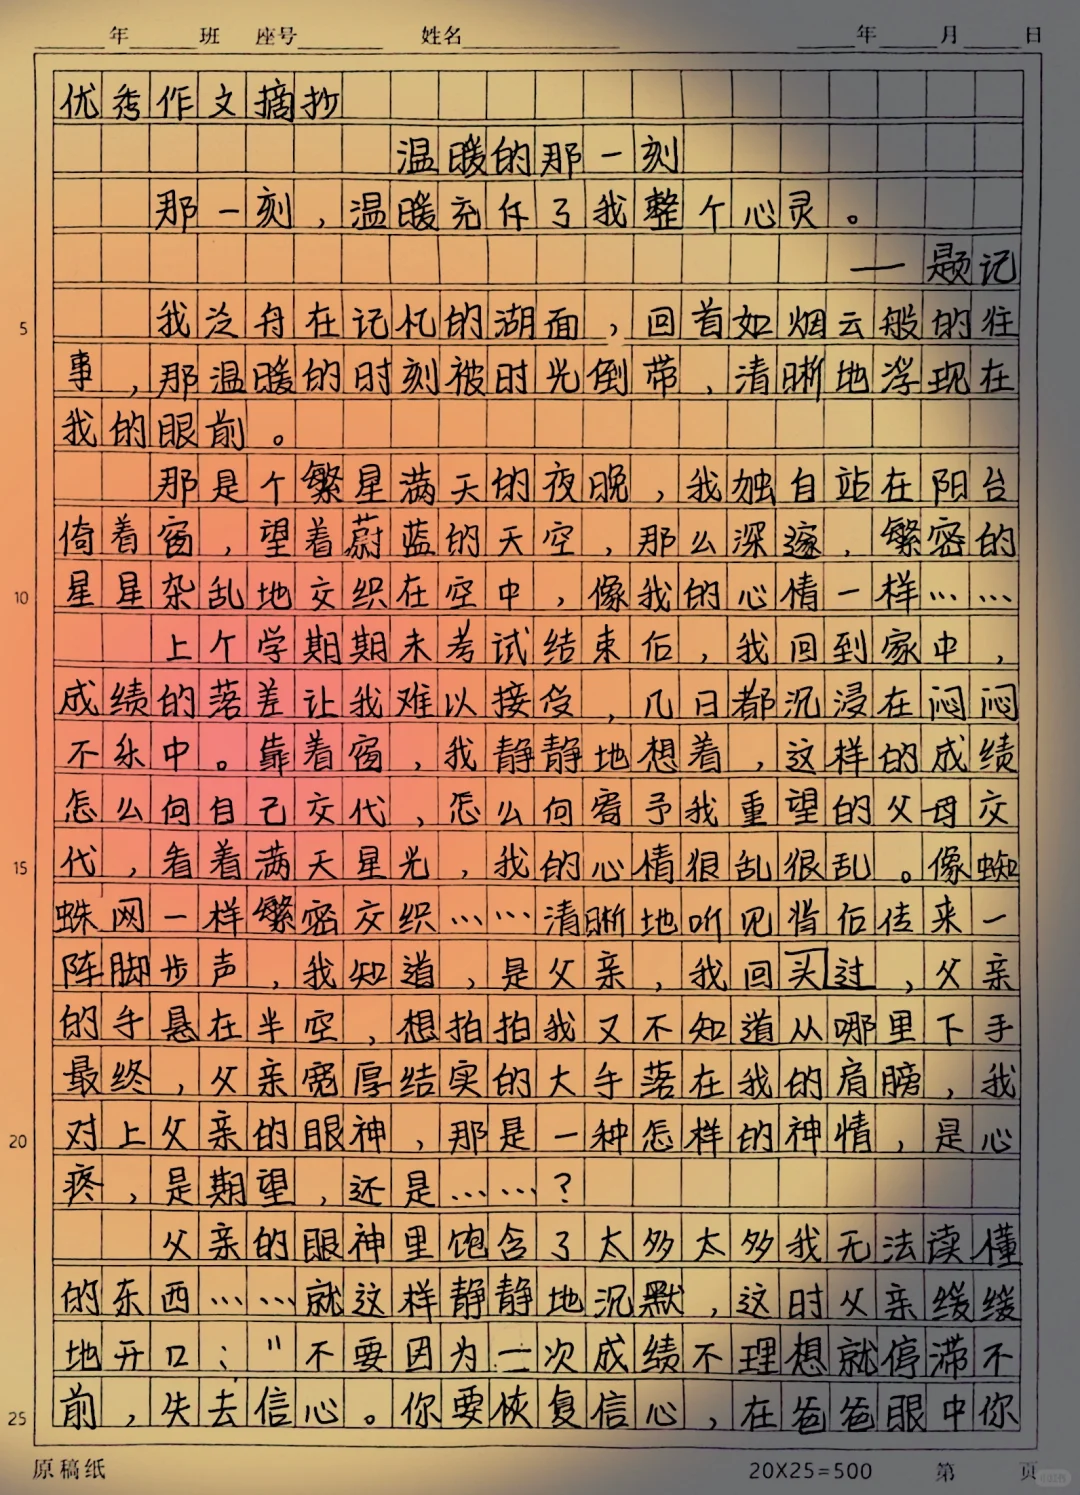 年 班 座号 姓名 年 月 日
优秀作文摘抄
温暖的那一刻
那一刻，温暖充斥了我整个心灵。
——题记
5 我泛舟在记忆的湖面，回首如烟云般的往
事，那温暖的时刻被时光倒带，清晰地浮现在
我的眼前。
那是个繁星满天的夜晚，我独自站在阳台
倚着窗，望着蔚蓝的天空，那么深邃，繁密的
10 星星杂乱地交织在空中，像我的心情一样……
上个学期期末考试结束后，我回到家中，
成绩的落差让我难以接受，几日都沉浸在闷闷
不乐中。靠着窗，我静静地想着，这样的成绩
怎么向自己交代，怎么向寄予我重望的父母交
15 代，看着满天星光，我的心情很乱很乱。像蜘
蛛网一样繁密交织……清晰地听见背后传来一
阵脚步声，我知道，是父亲，我回头过，父亲
的手悬在半空，想拍拍我又不知道从哪里下手
最终，父亲宽厚结实的大手落在我的肩膀，我
20 对上父亲的眼神，那是一种怎样的神情，是心
疼，是期望，还是……？
父亲的眼神里饱含了太多太多我无法读懂
的东西……就这样静静地沉默，这时父亲缓缓
地开口："不要因为一次成绩不理想就停滞不
25 前，失去信心。你要恢复信心，在爸爸眼中你
原稿纸 20X25=500 第 页